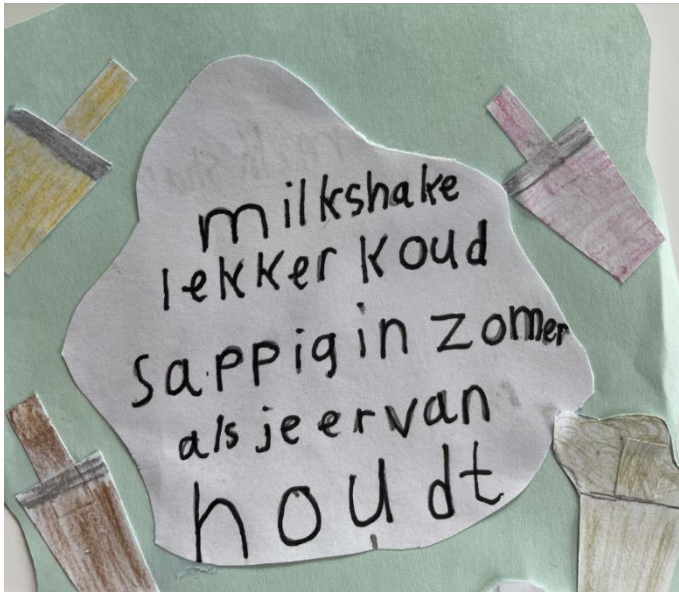 milkshake
lekker koud
sappig in zomer
als je er van
houdt